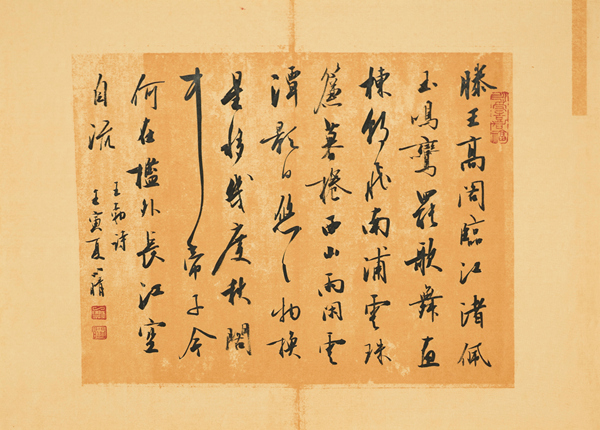 滕王高閣臨江渚佩
玉鳴鸞罷歌舞畫
棟朝飛南浦雲珠
簾暮捲西山雨閑雲
潭影日悠々物換
星移幾度秋閣
中帝子今
何在檻外長江空
自流
王勃詩
壬寅夏